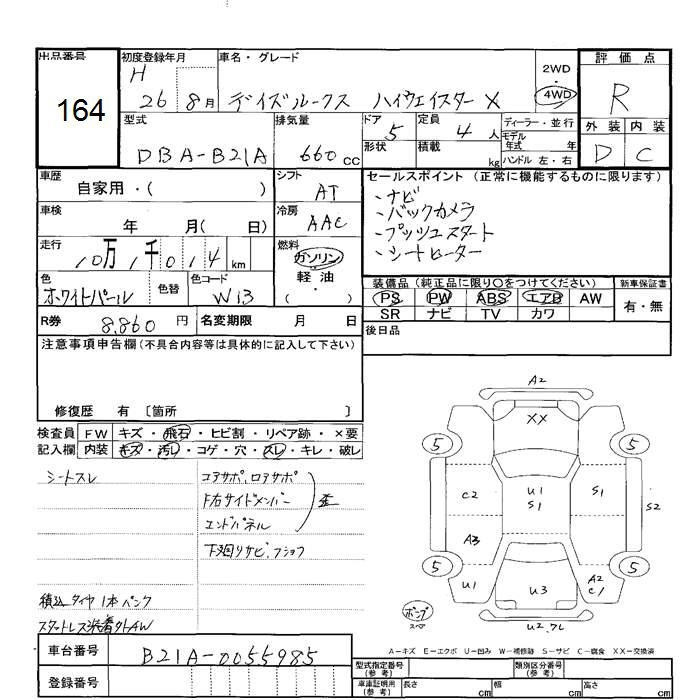 出品番号 164
初度登録年月 H 26 8月
車名・グレード デイズルークス ハイウェイスター X
2WD・4WD
評価点 R
外装 内装
D C
型式 DBA-B21A
排気量 660cc
ドア 5
形状
定員 4人
積載 kg
ディーラー・並行
モデル年式 年
ハンドル 左・右
車歴 自家用・( )
シフト AT
車検 年 月( 日)
冷房 AAC
走行 10万1千014km
燃料 ガソリン
軽油
( ・ )
色 ホワイトパール
色替
色コード W13
R券 8,860円
名変期限 月 日
セールスポイント (正常に機能するものに限ります)
・ナビ
・バックカメラ
・プッシュスタート
・シートヒーター
装備品 (純正品に限り〇をつけてください)
PS PW ABS エアB AW
SR ナビ TV カワ
新車保証書
有・無
後日品
注意事項申告欄(不具合内容等は具体的に記入して下さい)
修復歴 有 〔箇所 〕
検査員 FW キズ・飛石・ヒビ割・リペア跡・×要
記入欄 内装 キズ・汚レ・コゲ・穴・スレ・キレ・破レ
シートスレ
コアサポ、ロアサポ
F右サイドメンバー
エンドパネル
歪
下廻りサビ、フショク
積込タイヤ1本パンク
スタットレス装着外AW
A2
XX
5 5
C2 U1 S1 S1 S2
A3
5 5
U1 U3 A2 C1
テンプ
スペア
U2.
A-キズ E-エクボ U-凹み W-補修跡 S-サビ C-腐食 XX-交換済
車台番号 B21A-0055985
登録番号
型式指定番号 (参考)
類別区分番号 (参考)
車庫証明用 (参考) 長さ cm 幅 cm 高さ cm